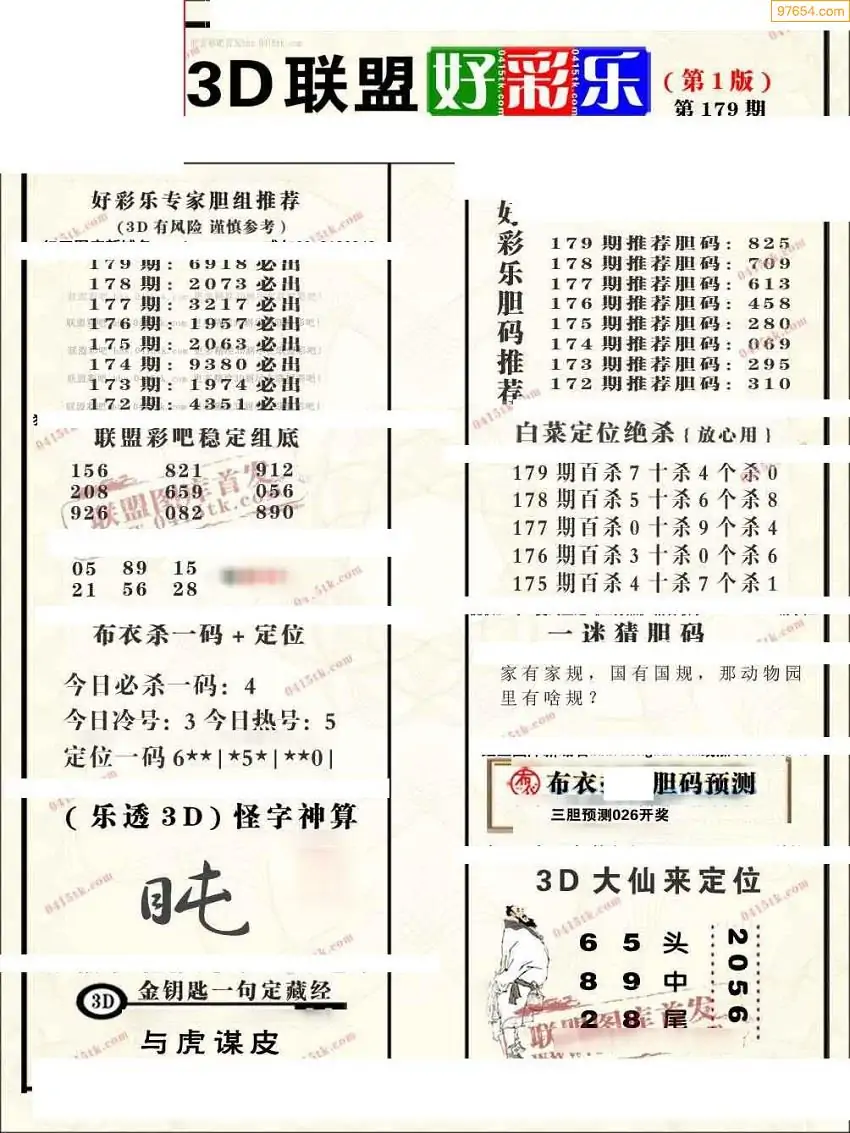 97654.com
3D联盟好彩乐
(第1版)
第179期
好彩乐专家胆组推荐
(3D有风险 谨慎参考)
179期: 6918必出
178期: 2073必出
177期: 3217必出
176期: 1957必出
175期: 2063必出
174期: 9380必出
173期: 1974必出
172期: 4351必出
联盟彩吧稳定组底
156 821 912
208 659 056
926 082 890
05 89 15
21 56 28
布衣杀一码+定位
今日必杀一码: 4
今日冷号: 3 今日热号: 5
定位一码 6**|*5*|**0|
(乐透3D)怪字神算
3D 金钥匙一句定藏经
与虎谋皮
好彩乐胆码推荐
179期推荐胆码: 825
178期推荐胆码: 709
177期推荐胆码: 613
176期推荐胆码: 458
175期推荐胆码: 280
174期推荐胆码: 069
173期推荐胆码: 295
172期推荐胆码: 310
白菜定位绝杀{放心用}
179期百杀7十杀4个杀0
178期百杀5十杀6个杀8
177期百杀0十杀9个杀4
176期百杀3十杀0个杀6
175期百杀4十杀7个杀1
一迷猜胆码
家有家规，国有国规，那动物园
里有啥规？
布衣 胆码预测
三胆预测026开奖
3D大仙来定位
6 5 头
8 9 中
2 8 尾
2056
联盟图库首发
0415tk.com